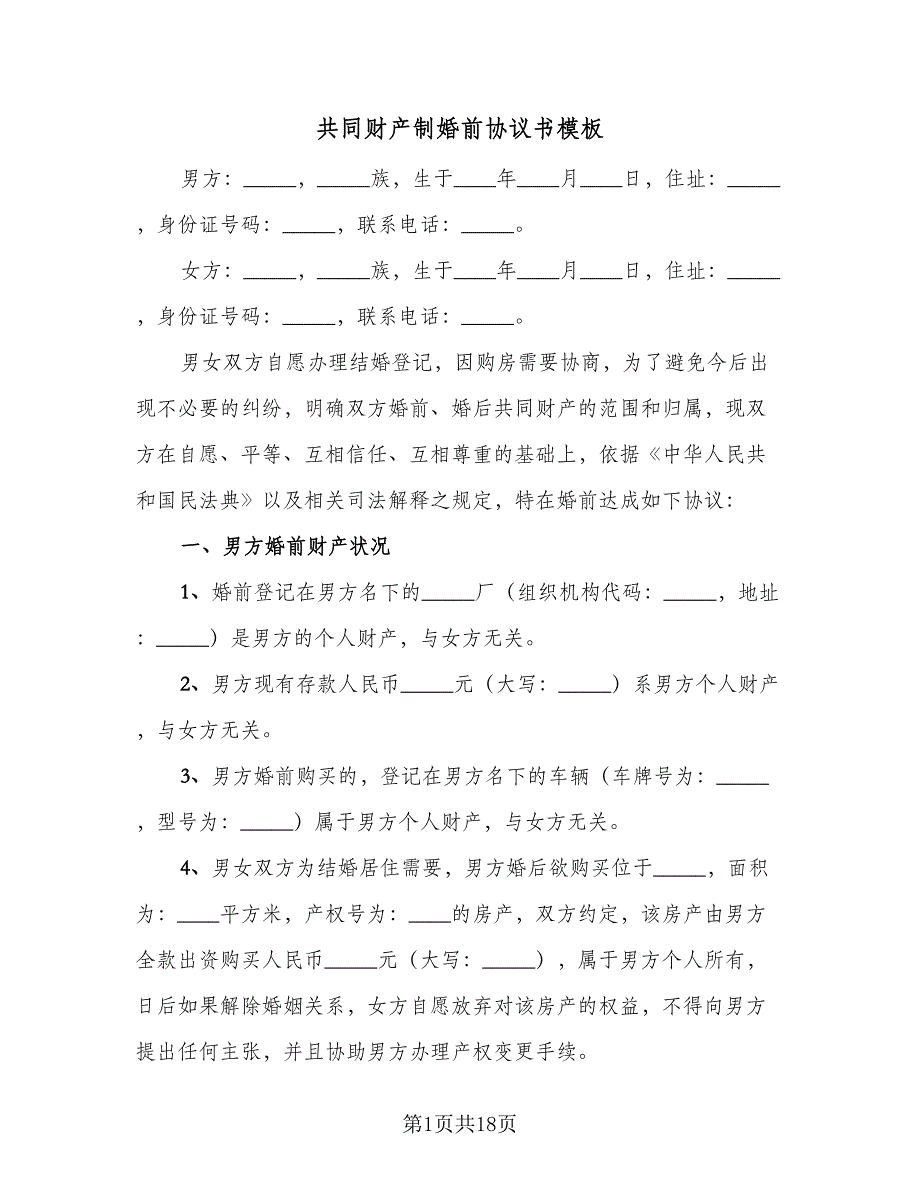 共同财产制婚前协议书模板
男方：_____，_____族，生于____年____月____日，住址：_____
，身份证号码：_____，联系电话：_____。
女方：_____，_____族，生于____年____月____日，住址：_____
，身份证号码：_____，联系电话：_____。
男女双方自愿办理结婚登记，因购房需要协商，为了避免今后出
现不必要的纠纷，明确双方婚前、婚后共同财产的范围和归属，现双
方在自愿、平等、互相信任、互相尊重的基础上，依据《中华人民共
和国民法典》以及相关司法解释之规定，特在婚前达成如下协议：
一、男方婚前财产状况
1、婚前登记在男方名下的_____厂（组织机构代码：_____，地址
：_____）是男方的个人财产，与女方无关。
2、男方现有存款人民币_____元（大写：_____）系男方个人财产
，与女方无关。
3、男方婚前购买的，登记在男方名下的车辆（车牌号为：_____
，型号为：_____）属于男方个人财产，与女方无关。
4、男女双方为结婚居住需要，男方婚后欲购买位于_____，面积
为：____平方米，产权号为：____的房产，双方约定，该房产由男方
全款出资购买人民币_____元（大写：_____），属于男方个人所有，
日后如果解除婚姻关系，女方自愿放弃对该房产的权益，不得向男方
提出任何主张，并且协助男方办理产权变更手续。
第1页共18页